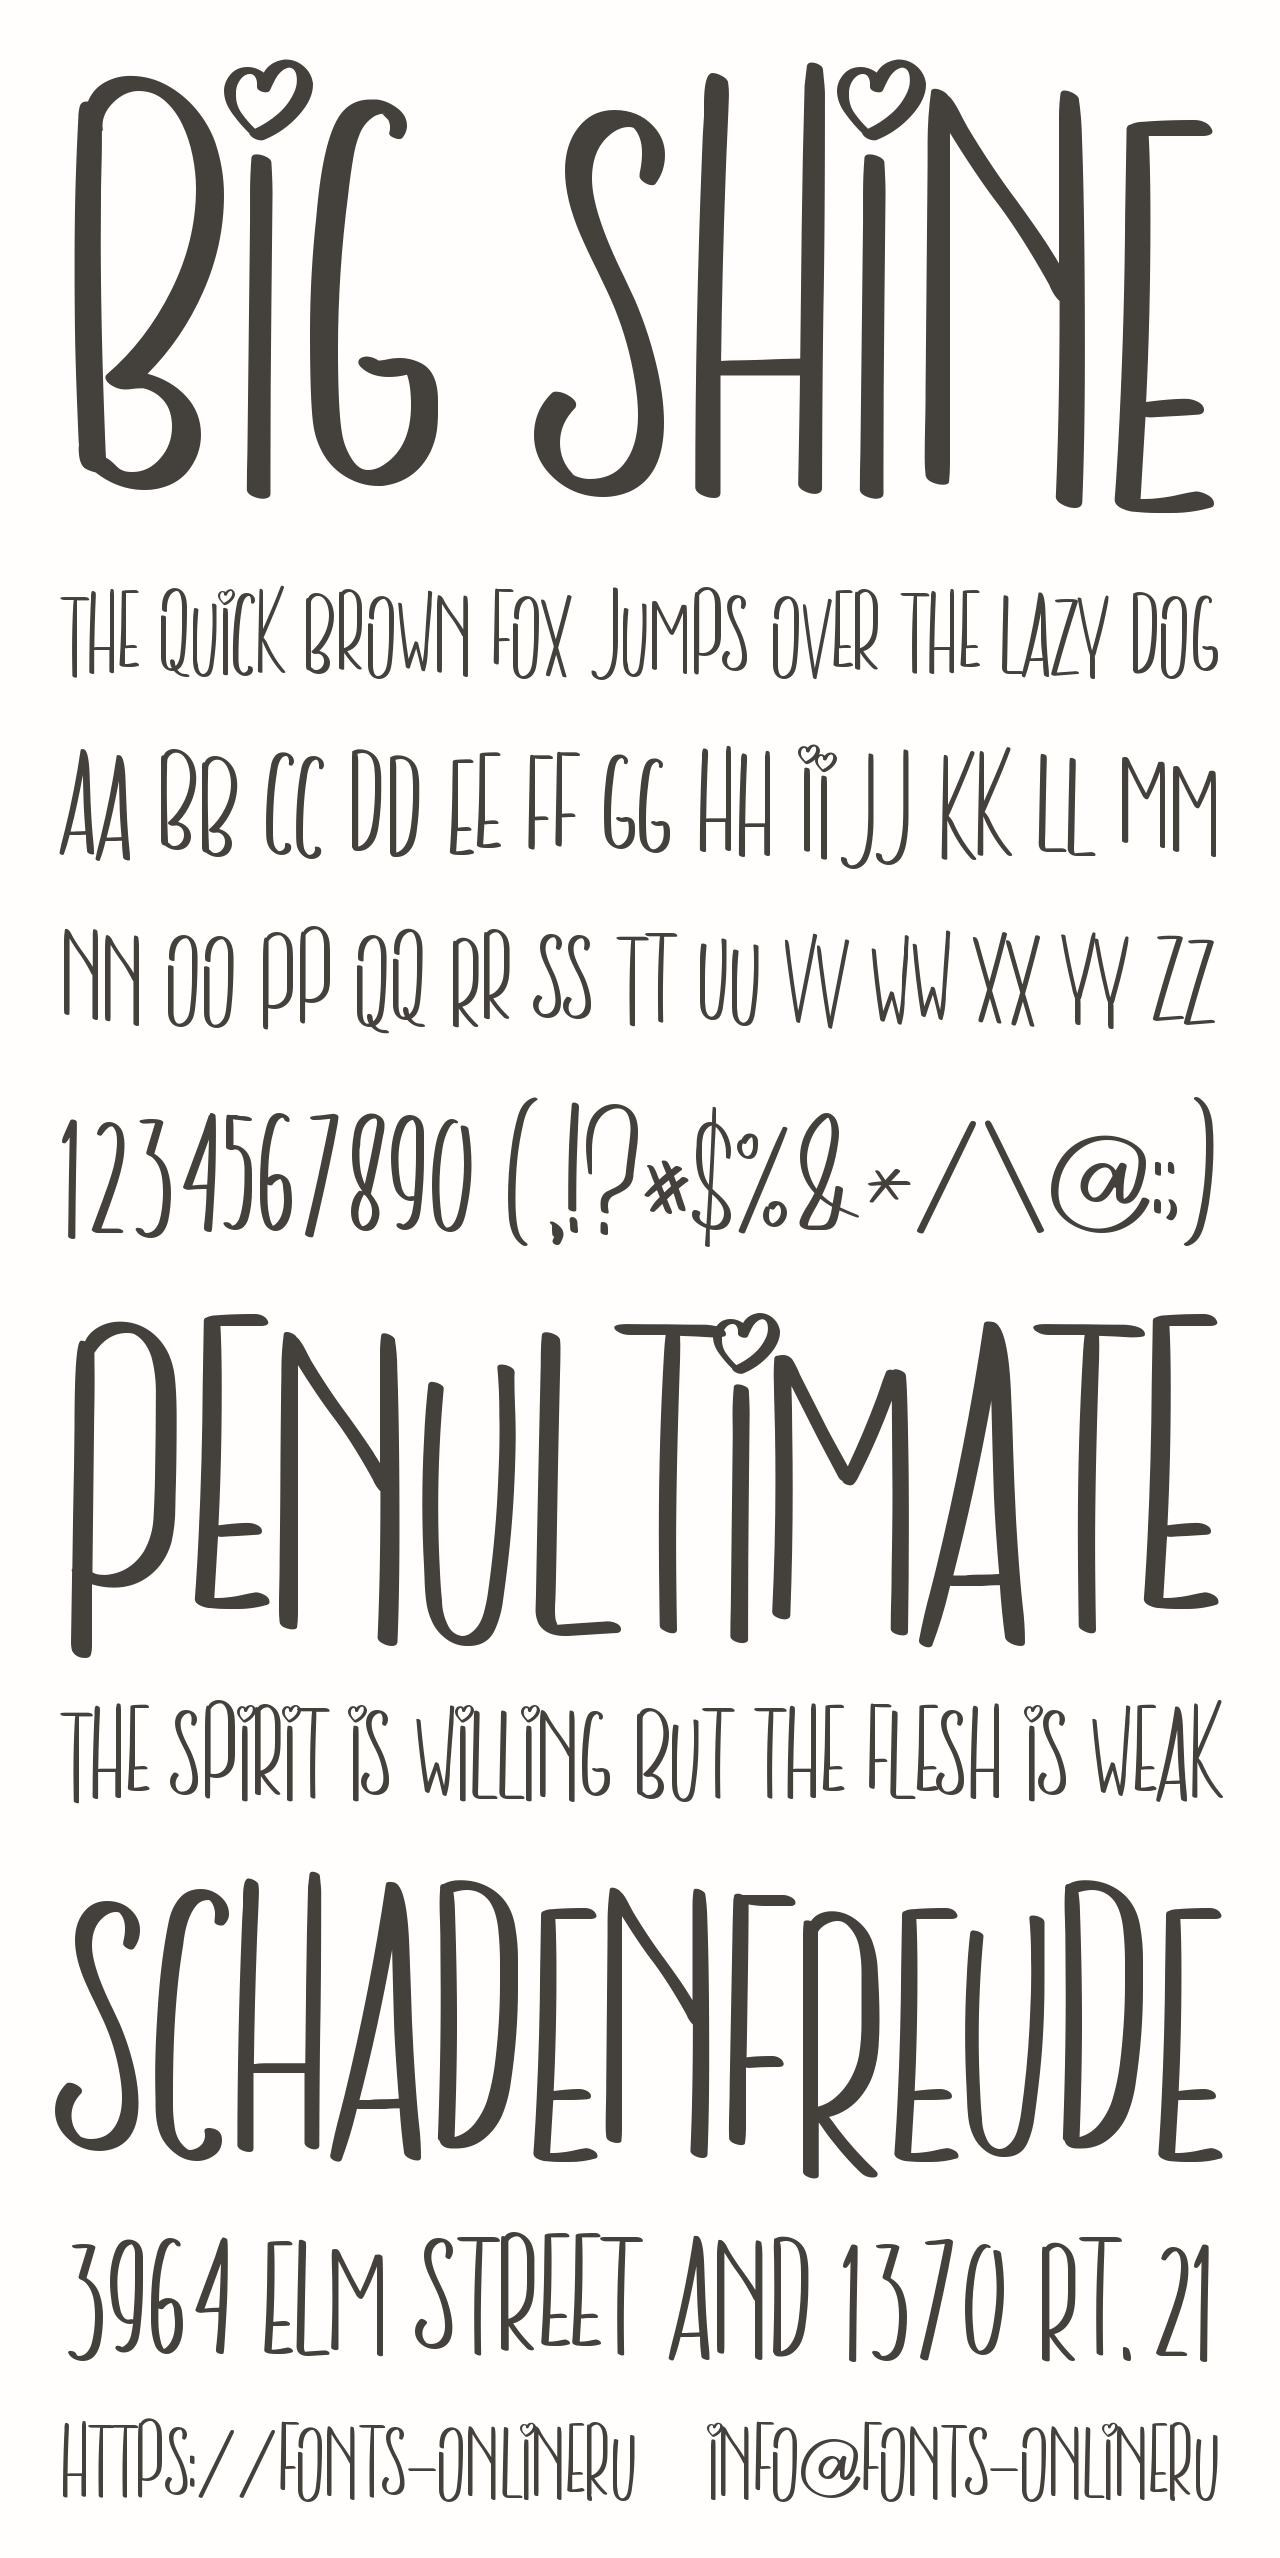 BiG SHiNE
THE QUiCK BROWN FOX JUMPS OVER THE LAZY DOG
AA BB CC DD EE FF GG HH ii JJ KK LL MM
NN OO PP QQ RR SS TT UU VV WW XX YY ZZ
1234567890 (,!?#$%&*/\@:;)
PENULTiMATE
THE SPiRiT iS WiLLiNG BUT THE FLESH iS WEAK
SCHADENFREUDE
3964 ELM STREET AND 1370 RT. 21
HTTPS://FONTS-ONLiNERU iNFO@FONTS-ONLiNERU